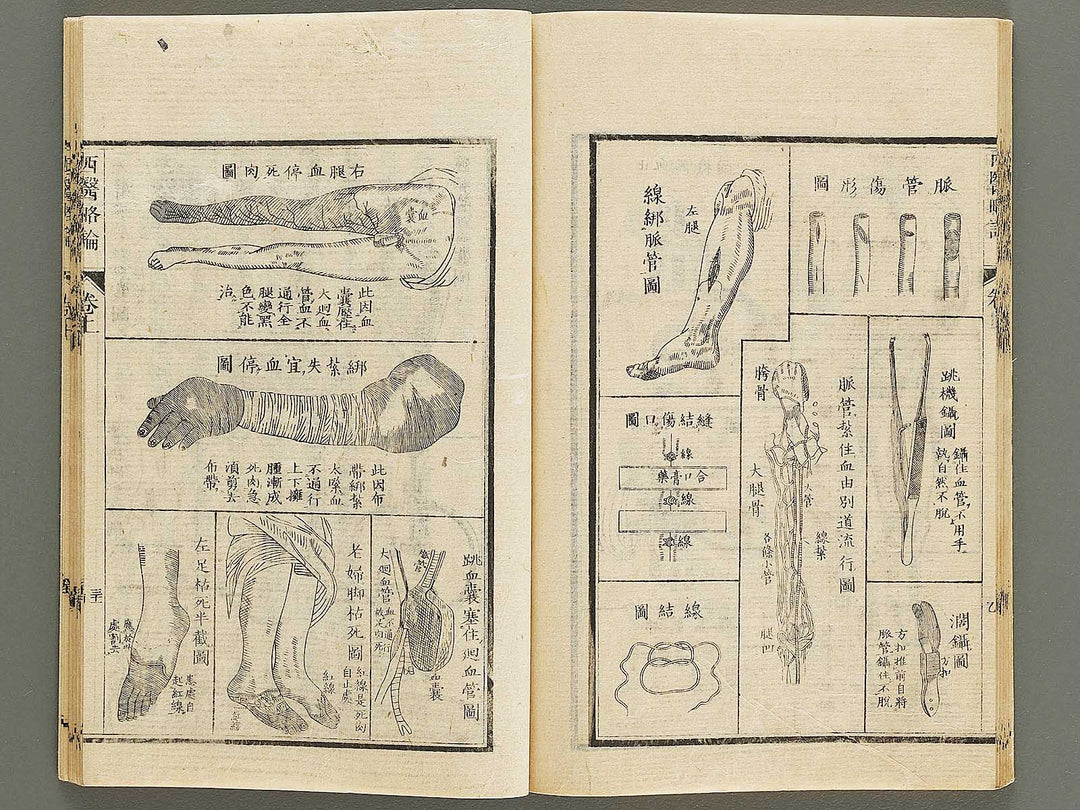 脈管傷形圖
跳機鑷圖
鑷住血管,不用手
執自然不脫
濶鑷圖
方扣
方扣推前自將
脈管鑷住不脫
脈管紮住血由別道流行圖
胯骨
大管
大腿骨
線紮
各條小管
腿凹
線綁脈管圖
左腿
縫結傷口圖
線
合口膏藥
線
線
線結圖
右腿血停死肉圖
血囊
此因血
囊壓住
大迴血
管,血不
通行全
腿變黑
色不能
治。
綁紮失宜,血停圖
此因布
帶綁紮
太緊血
不通行
上下擁
腫漸成
死肉急
須剪去
布帶,
跳血囊塞住迴血管圖
血囊
大迴血管
血不通行
故足肉死
老婦脚枯死圖
紅線是死肉
自止處
紅線
左足枯死半截圖
患處自
起紅線,
應於此
處割去
西醫略論
卷上